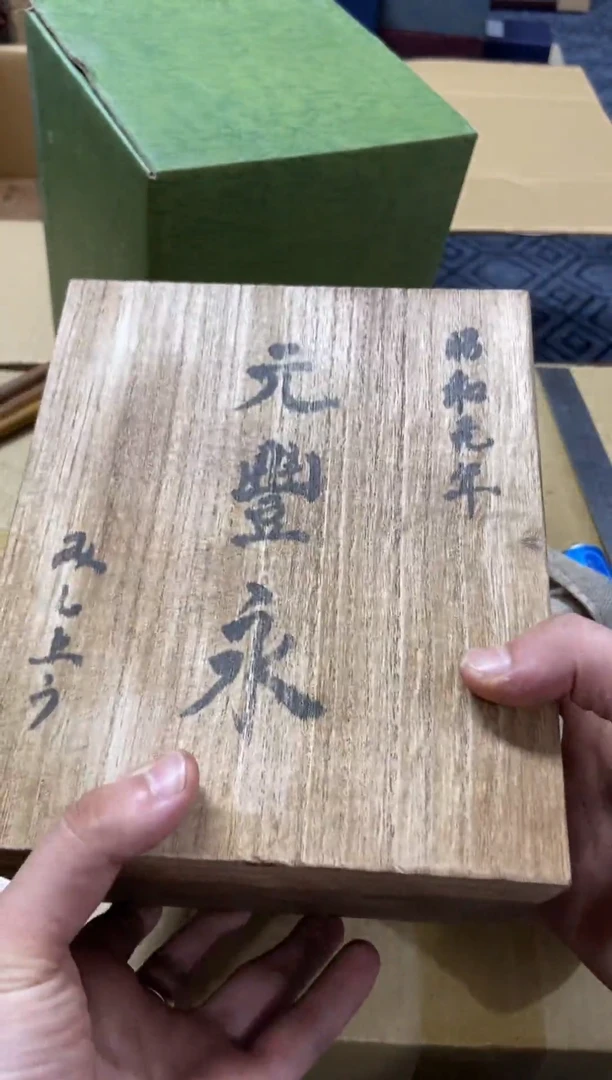 昭和元年
元豊永
し上う